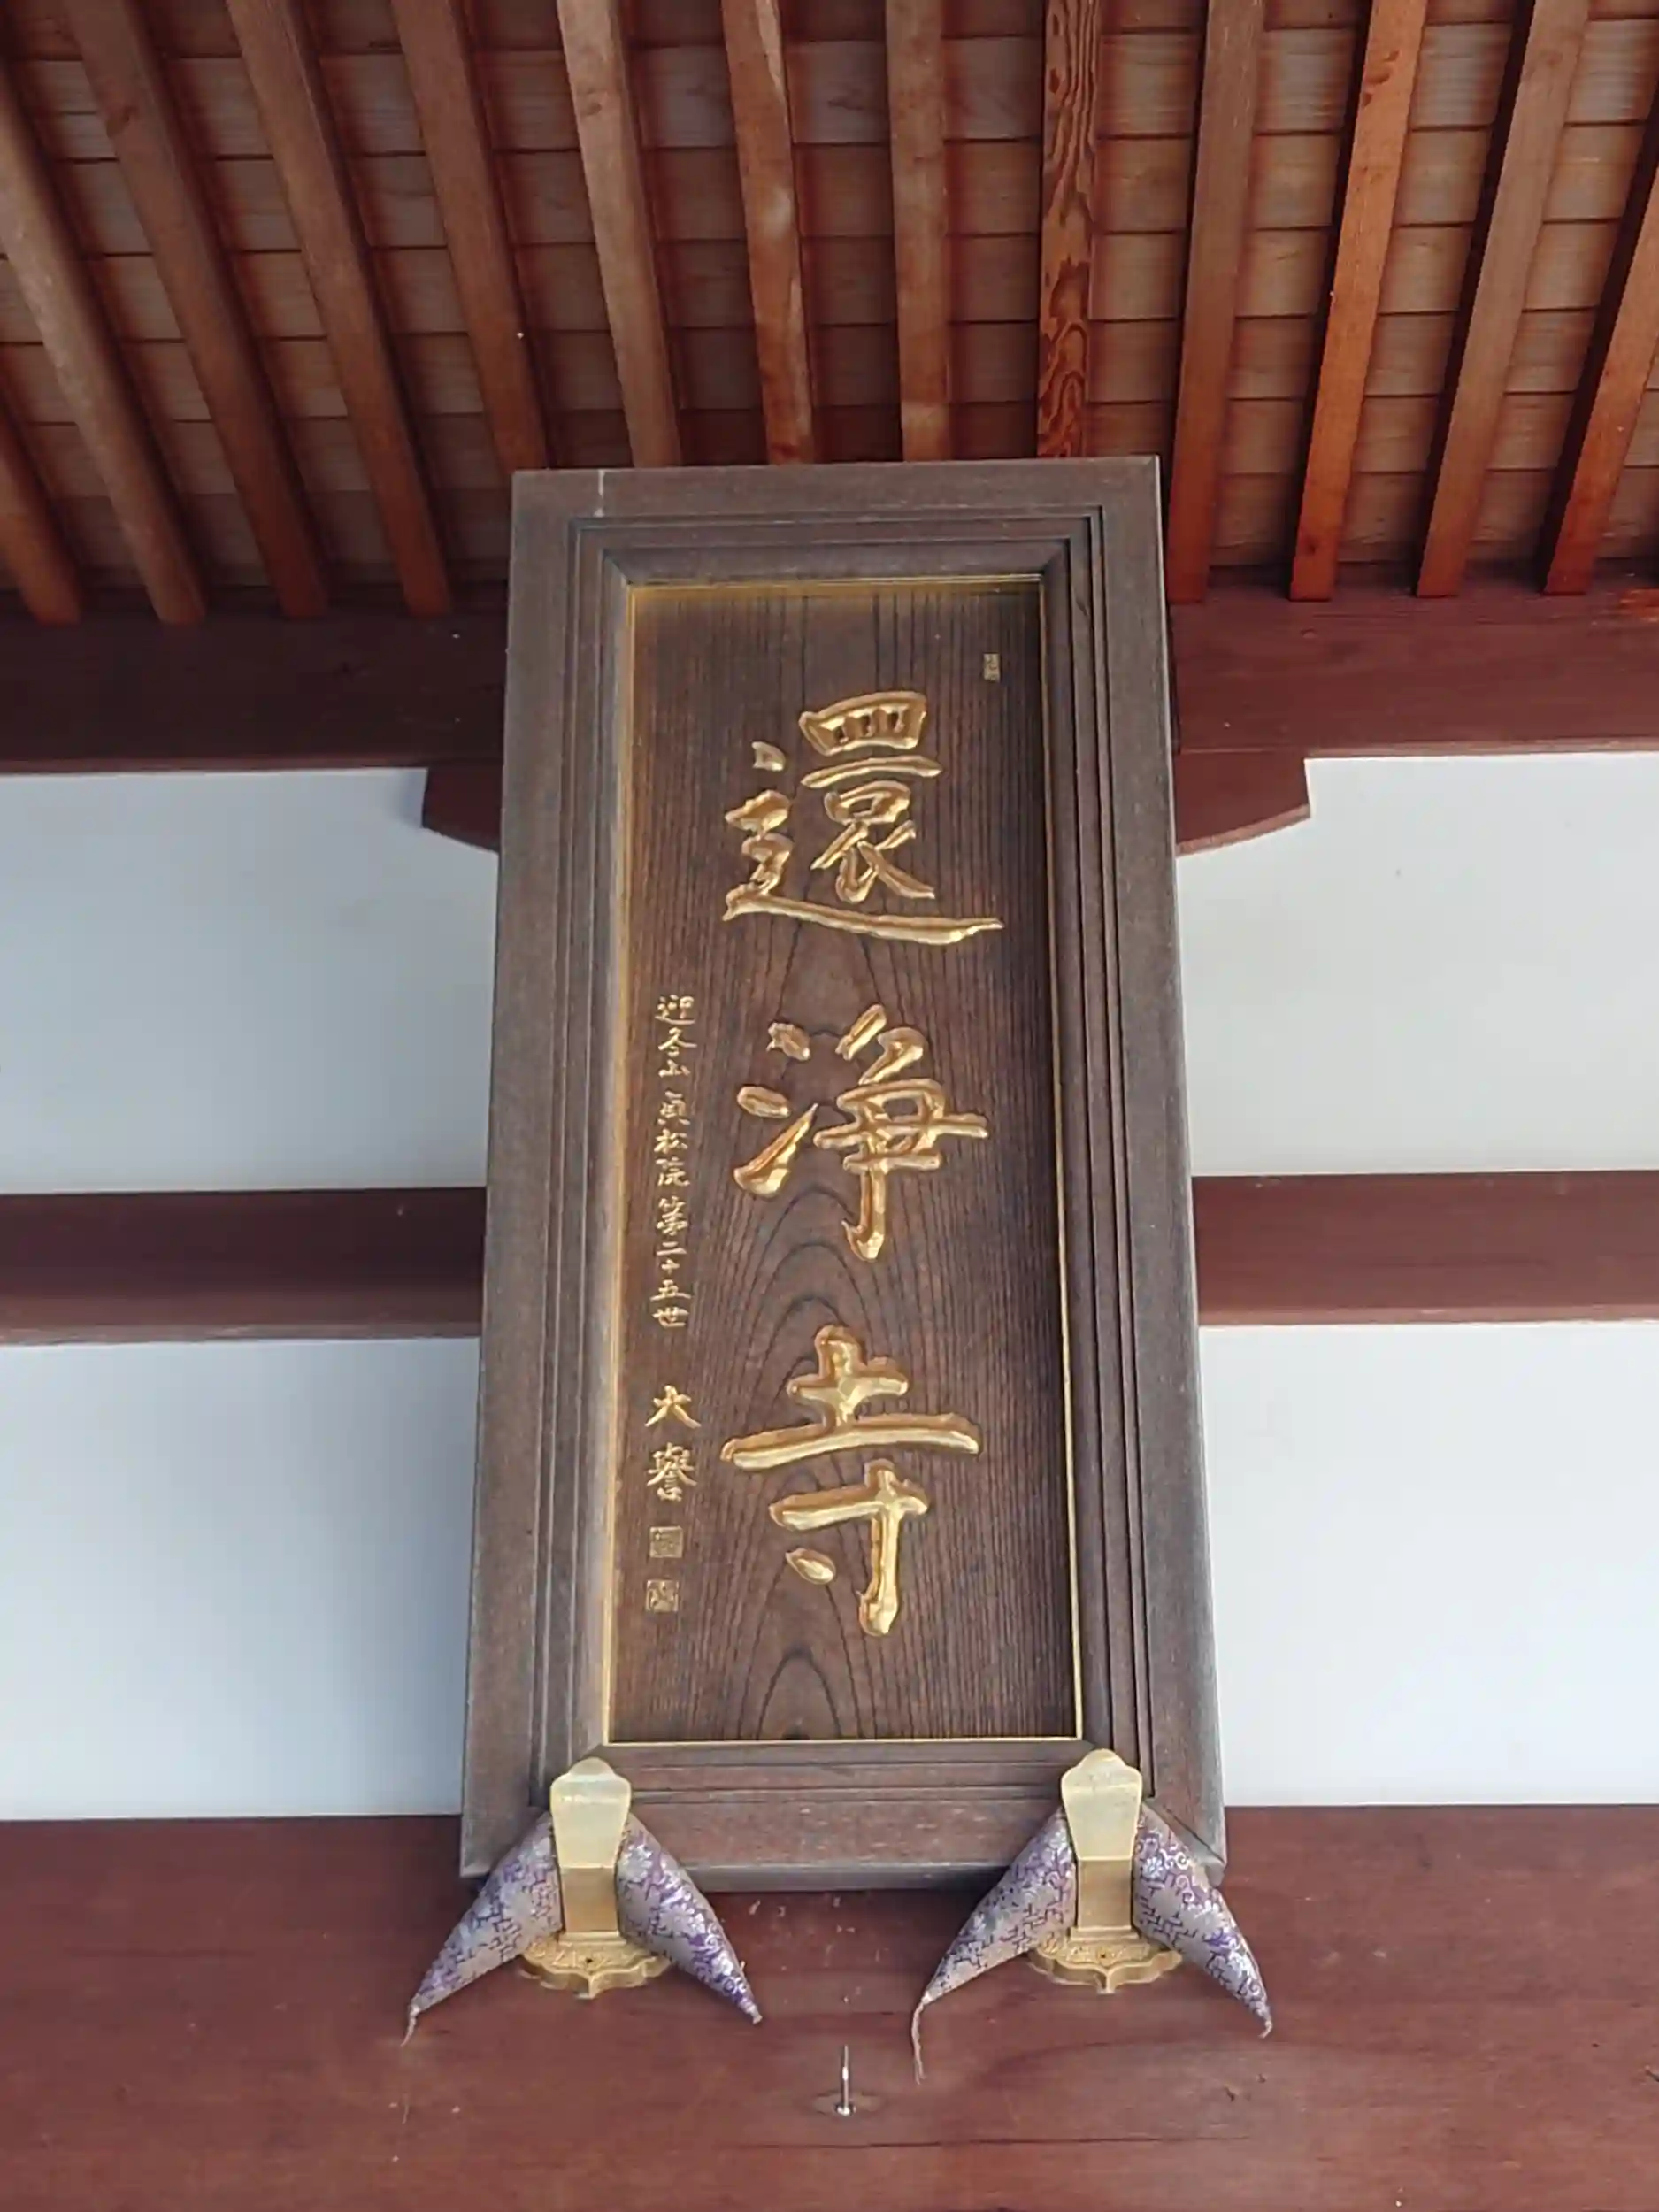 還淨寺
迎冬山眞松院第二十五世 大譽